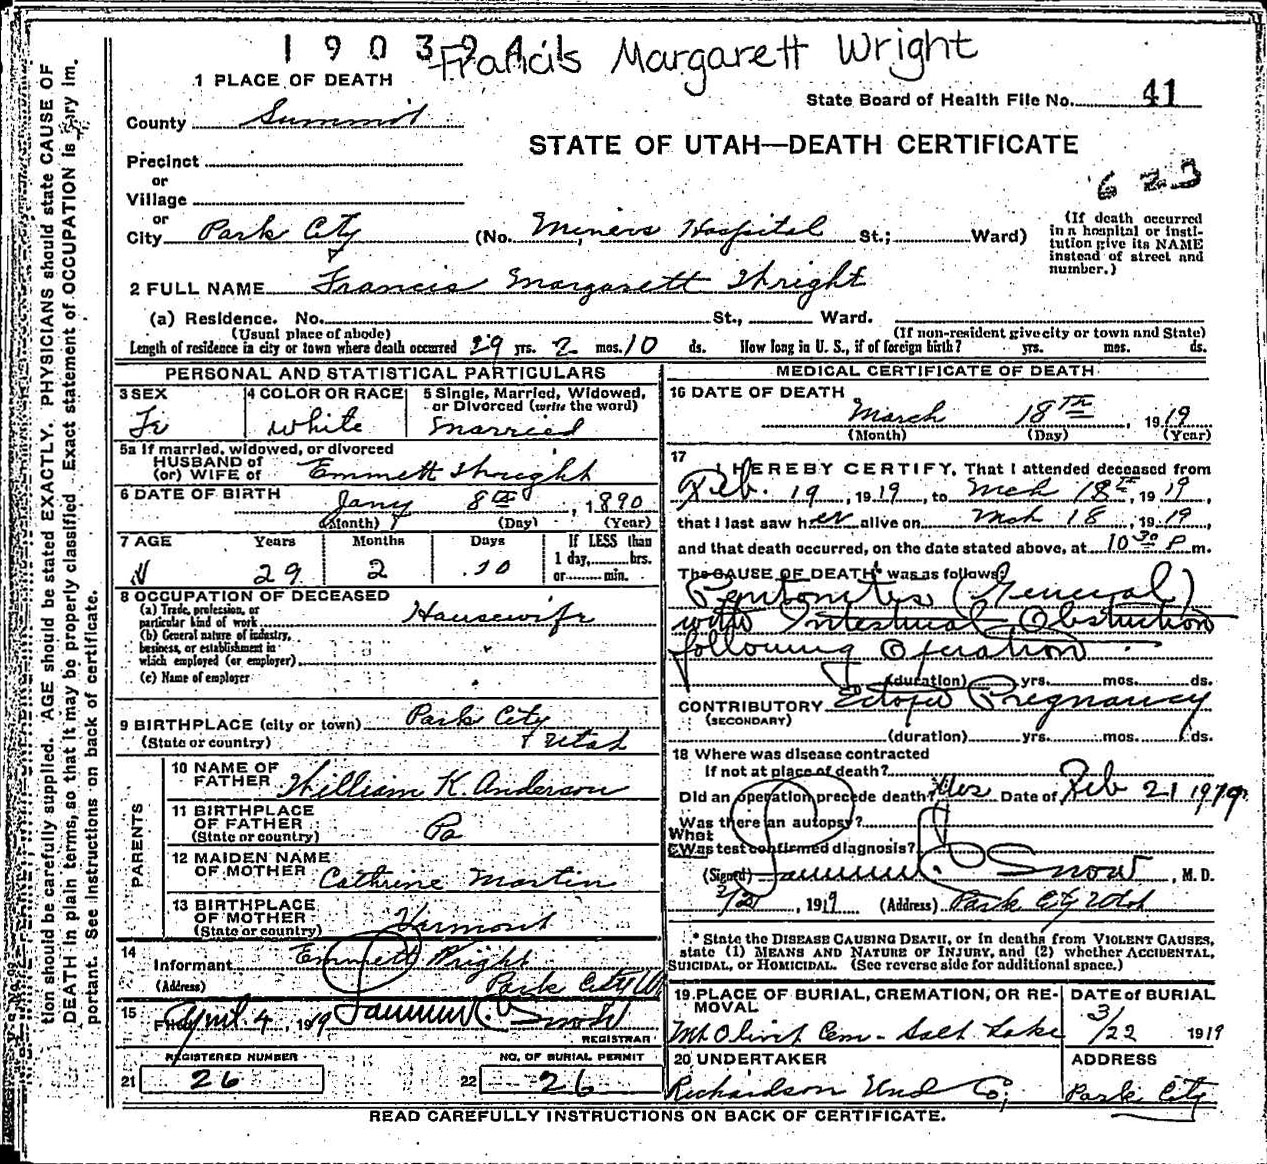 190394
Francis Margarett Wright
1 PLACE OF DEATH
State Board of Health File No. 41
County Summit
STATE OF UTAH—DEATH CERTIFICATE
Precinct
or
623
Village
or
City Park City (No. Miners Hospital St.; Ward)
(If death occurred in a hospital or institution give its NAME instead of street and number.)
2 FULL NAME Francis Margarett Wright
(a) Residence. No. St., Ward.
(Usual place of abode) (If non-resident give city or town and State)
Length of residence in city or town where death occurred 29 yrs. 2 mos. 10 ds. How long in U. S., if of foreign birth? yrs. mos. ds.
PERSONAL AND STATISTICAL PARTICULARS
3 SEX 4 COLOR OR RACE 5 Single, Married, Widowed, or Divorced (write the word)
white Married
5a If married, widowed, or divorced
HUSBAND of
(or) WIFE of Emmett Wright
6 DATE OF BIRTH Jany 8th, 1890
(Month) (Day) (Year)
7 AGE Years Months Days If LESS than
1 day, hrs.
or min.
29 2 10
8 OCCUPATION OF DECEASED
(a) Trade, profession, or
particular kind of work Housewife
(b) General nature of industry,
business, or establishment in
which employed (or employer)
(c) Name of employer
9 BIRTHPLACE (city or town) Park City
(State or country) Utah
PARENTS
10 NAME OF
FATHER William K. Anderson
11 BIRTHPLACE
OF FATHER Pa
(State or country)
12 MAIDEN NAME
OF MOTHER Cathrine Martin
13 BIRTHPLACE
OF MOTHER Vermont
(State or country)
14
Informant Emmett Wright
(Address) Park City
15
Filed April 4, 1919 Snow
REGISTRAR
REGISTERED NUMBER NO. OF BURIAL PERMIT
21 26 22 26
MEDICAL CERTIFICATE OF DEATH
16 DATE OF DEATH
March 18TH, 1919
(Month) (Day) (Year)
17
I HEREBY CERTIFY, That I attended deceased from
Feb. 19, 1919, to Mch 18th, 1919,
that I last saw her alive on Mch 18, 1919,
and that death occurred, on the date stated above, at 10 30 P m.
The CAUSE OF DEATH* was as follows:
Peritonites (General)
with Intestinal Obstruction
following Operation
(duration) yrs. mos. ds.
CONTRIBUTORY Ectopic Pregnancy
(SECONDARY)
(duration) yrs. mos. ds.
18 Where was disease contracted
If not at place of death?
Did an operation precede death? Yes Date of Feb 21 1919
Was there an autopsy?
What
Was test confirmed diagnosis?
(Signed) Snow, M. D.
, 1919 (Address) Park City Utah
* State the DISEASE CAUSING DEATH, or in deaths from VIOLENT CAUSES, state (1) MEANS AND NATURE OF INJURY, and (2) whether ACCIDENTAL, SUICIDAL, or HOMICIDAL. (See reverse side for additional space.)
19 PLACE OF BURIAL, CREMATION, OR REMOVAL DATE of BURIAL
Mt Olivet Cem - Salt Lake 3/22 1919
20 UNDERTAKER ADDRESS
Richardson Und Co; Park City
READ CAREFULLY INSTRUCTIONS ON BACK OF CERTIFICATE.
tion should be carefully supplied. AGE should be stated EXACTLY. PHYSICIANS should state CAUSE OF
DEATH in plain terms, so that it may be properly classified. Exact statement of OCCUPATION is very im-
portant. See instructions on back of certificate.